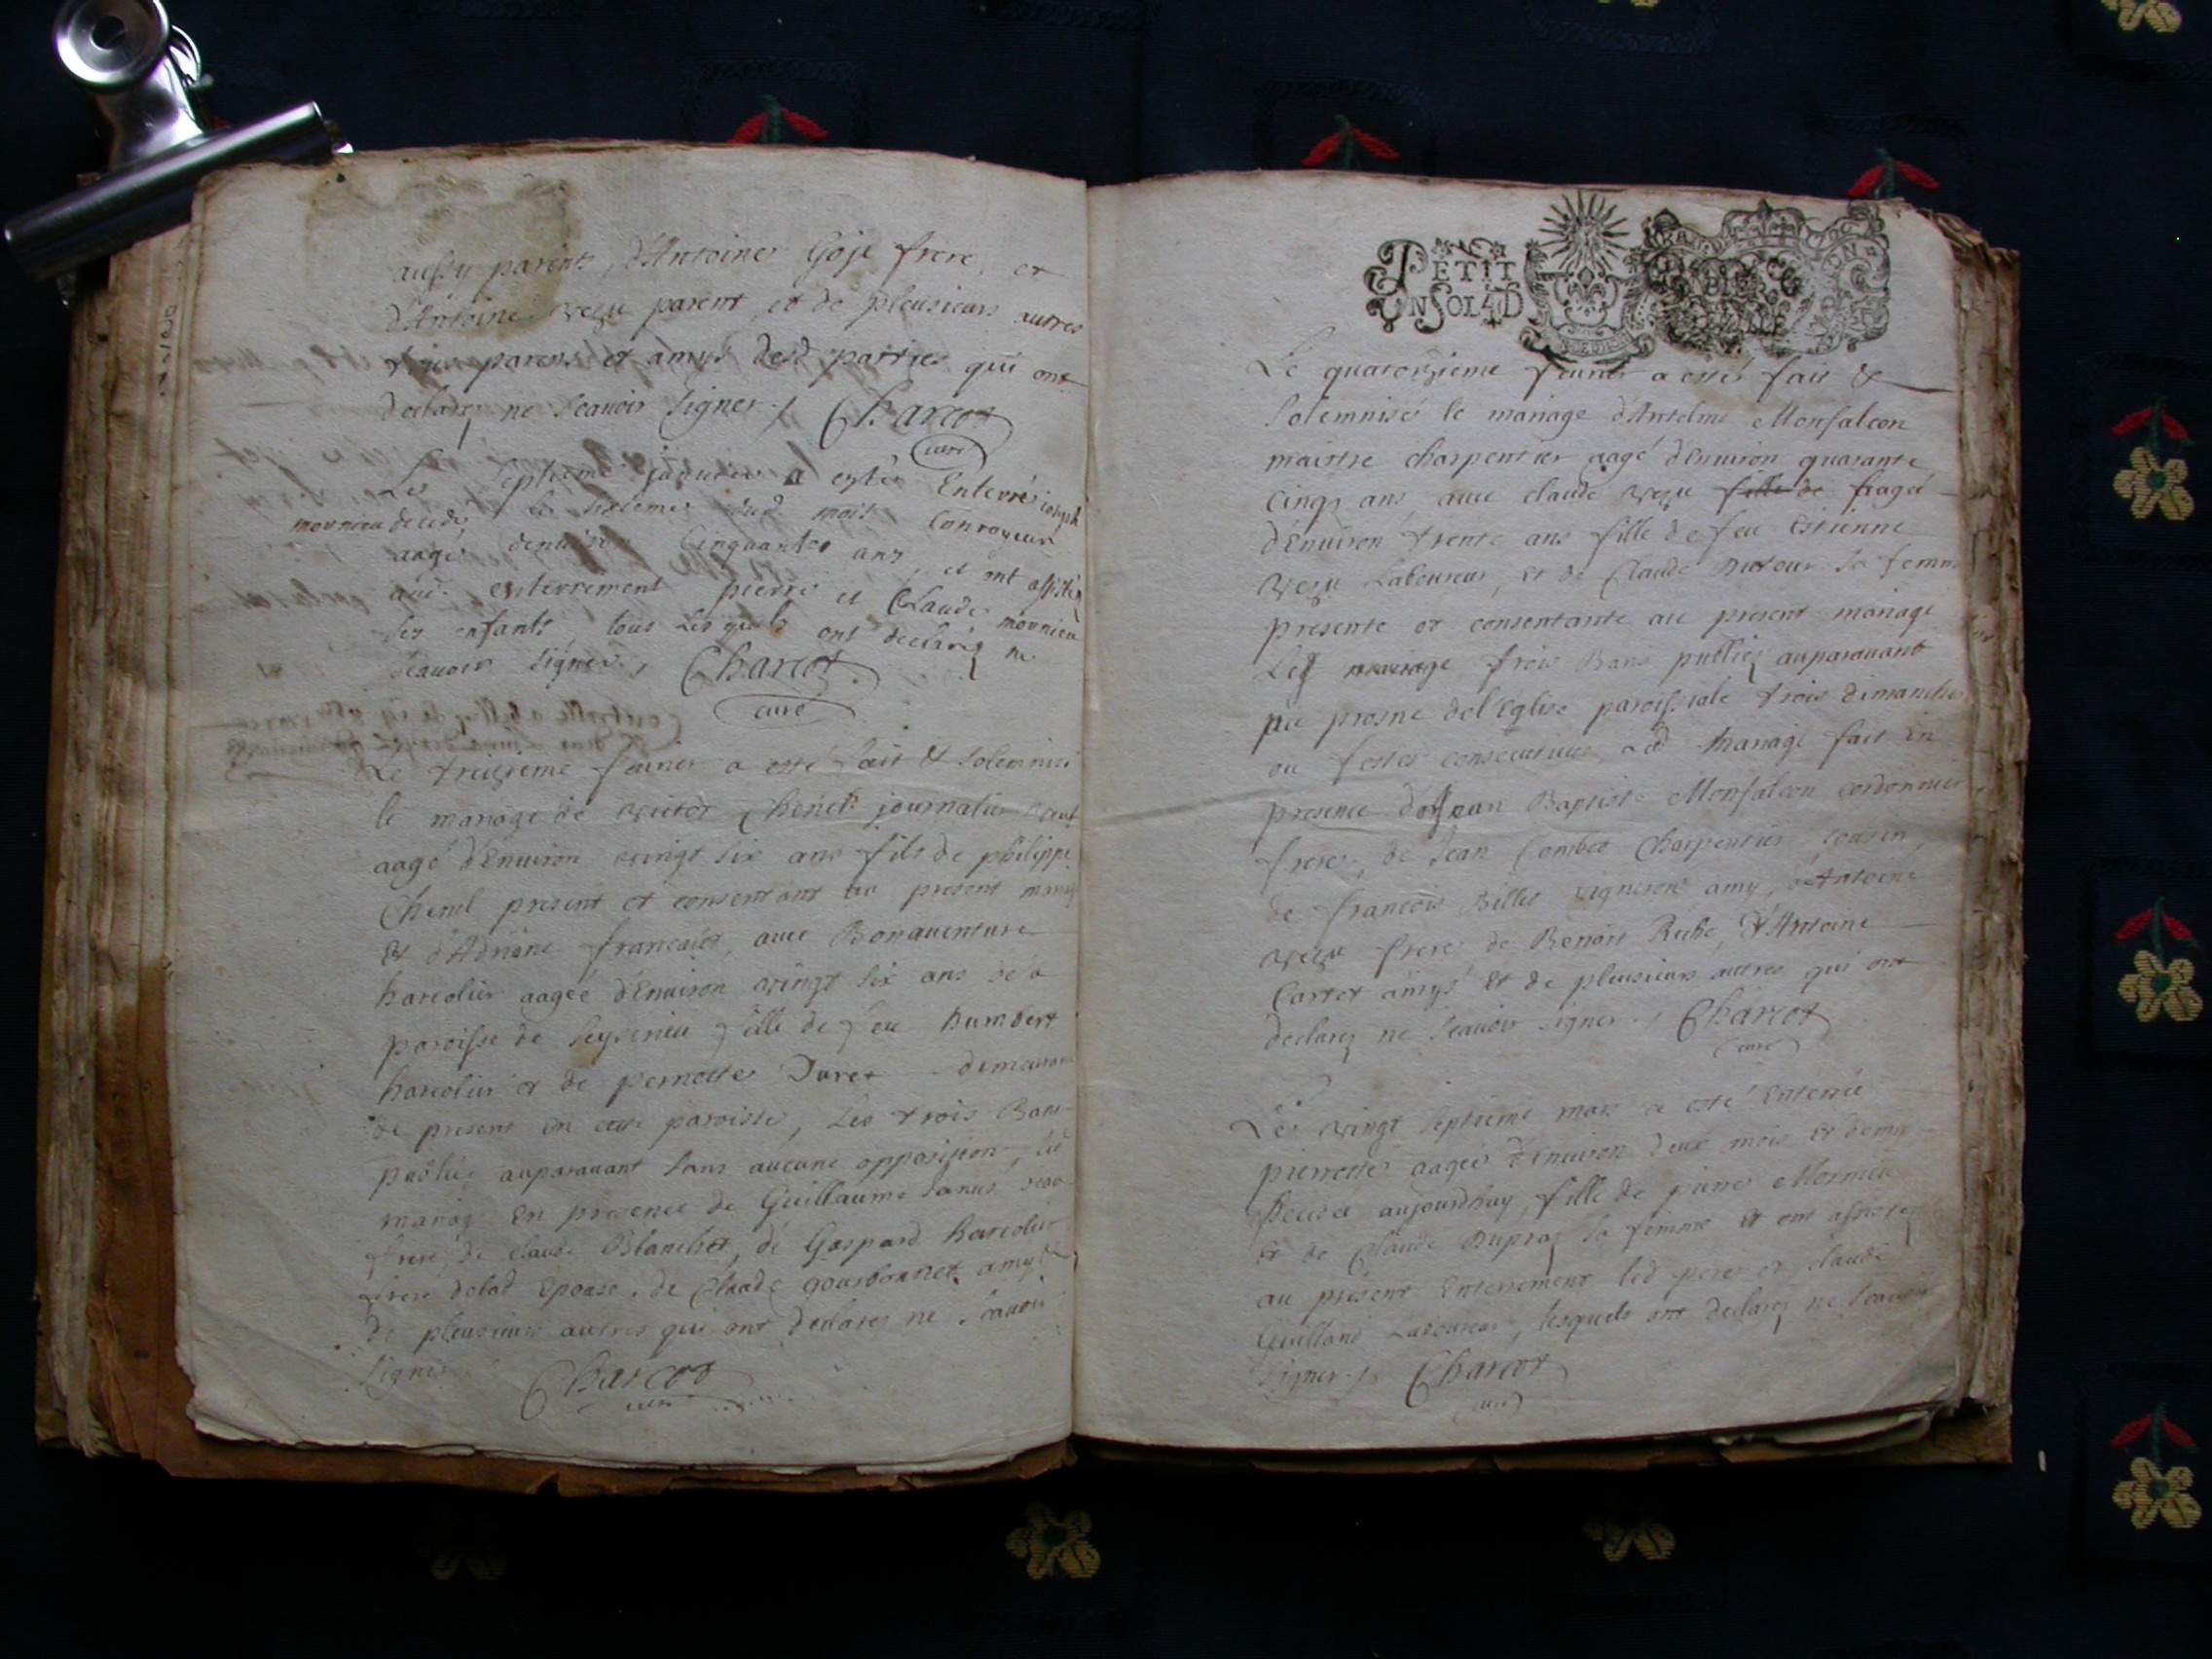 aussy parents, d'Antoine Goje frere, et
d'Antoine vezu parent, et de pleusieurs autres
parens et amys desd parties qui ont
declarez ne scauoir signer. / Charcot
curé
Le septieme januier a estés Enterré
mornieu decedé le sixiemes dud mois Conroyeur
aagé denuiron Cinquantes ans, et ont assistés
aud. enterrement pierre et Claude mornieu
ses enfants, tous lesquels ont declaréz ne
scauoir signer, Charcot.
curé
Le treizieme feurier a esté fait & solemnisé
le mariage de victor Chenel journalier
aagé d'Enuiron vingt six ans fils de philippe
Chenel present et consentant au present mariag
Et d'Adriane francaies, auec Bonauenture
harcolier aagée d'Enuiron vingt six ans de la
paroisse de seyssenieu fille de feu humbert
harcolier et de pernette Duret demeurant
de present en cette paroisse, Les trois Bans
publiés auparauant sans aucune opposition, led
mariag En presence de Guillaume
frere, de claude Blanchet, de Gaspard harcolier
frere delad Epouse, de Claude gourbonnet amys
de pleusieurs autres qui ont declarez ne scauoir
signer Charcot
curé
PETIT
UN SOL 4 D
Le quatorzieme feurier a estés fait &
Solemnisé le mariage d'Antelme Monfalcon
maistre charpentier aagé d'Enuiron quarante
Cinq ans, auec claude vezu fille de aagée
d'Enuiron trente ans fille de feu Estienne
vezu Laboureur, Et de Claude Dutour sa femme
presente et consentante au present mariage
Les mariage trois Bans publiez auparauant
au prosne del'Eglise paroissiale trois dimanches
ou festes consecutiues, led mariage fait En
presence de Jean Baptiste Monfalcon cordonnier
frere, de Jean Combet Charpentier cousin,
de francois Billet vigneron amy, d'Antoine
vezu frere, de Benoist Riche, d'Antoine
Cartet amys Et de pleusieurs autres qui ont
declarez ne scauoir signer. / Charcot
curé
Le vingt septieme mars a esté Enterrée
pierrette aagée d'Enuiron deux mois Et demy
decedée aujourdhuy, fille de pierre Mornieu
Et de Claude Dupraz sa femme Et ont assistez
au present Enterrement led pere et claude
Guilland Laboureur, lesquels ont declarez ne scauoir
signer. / Charcot
curé